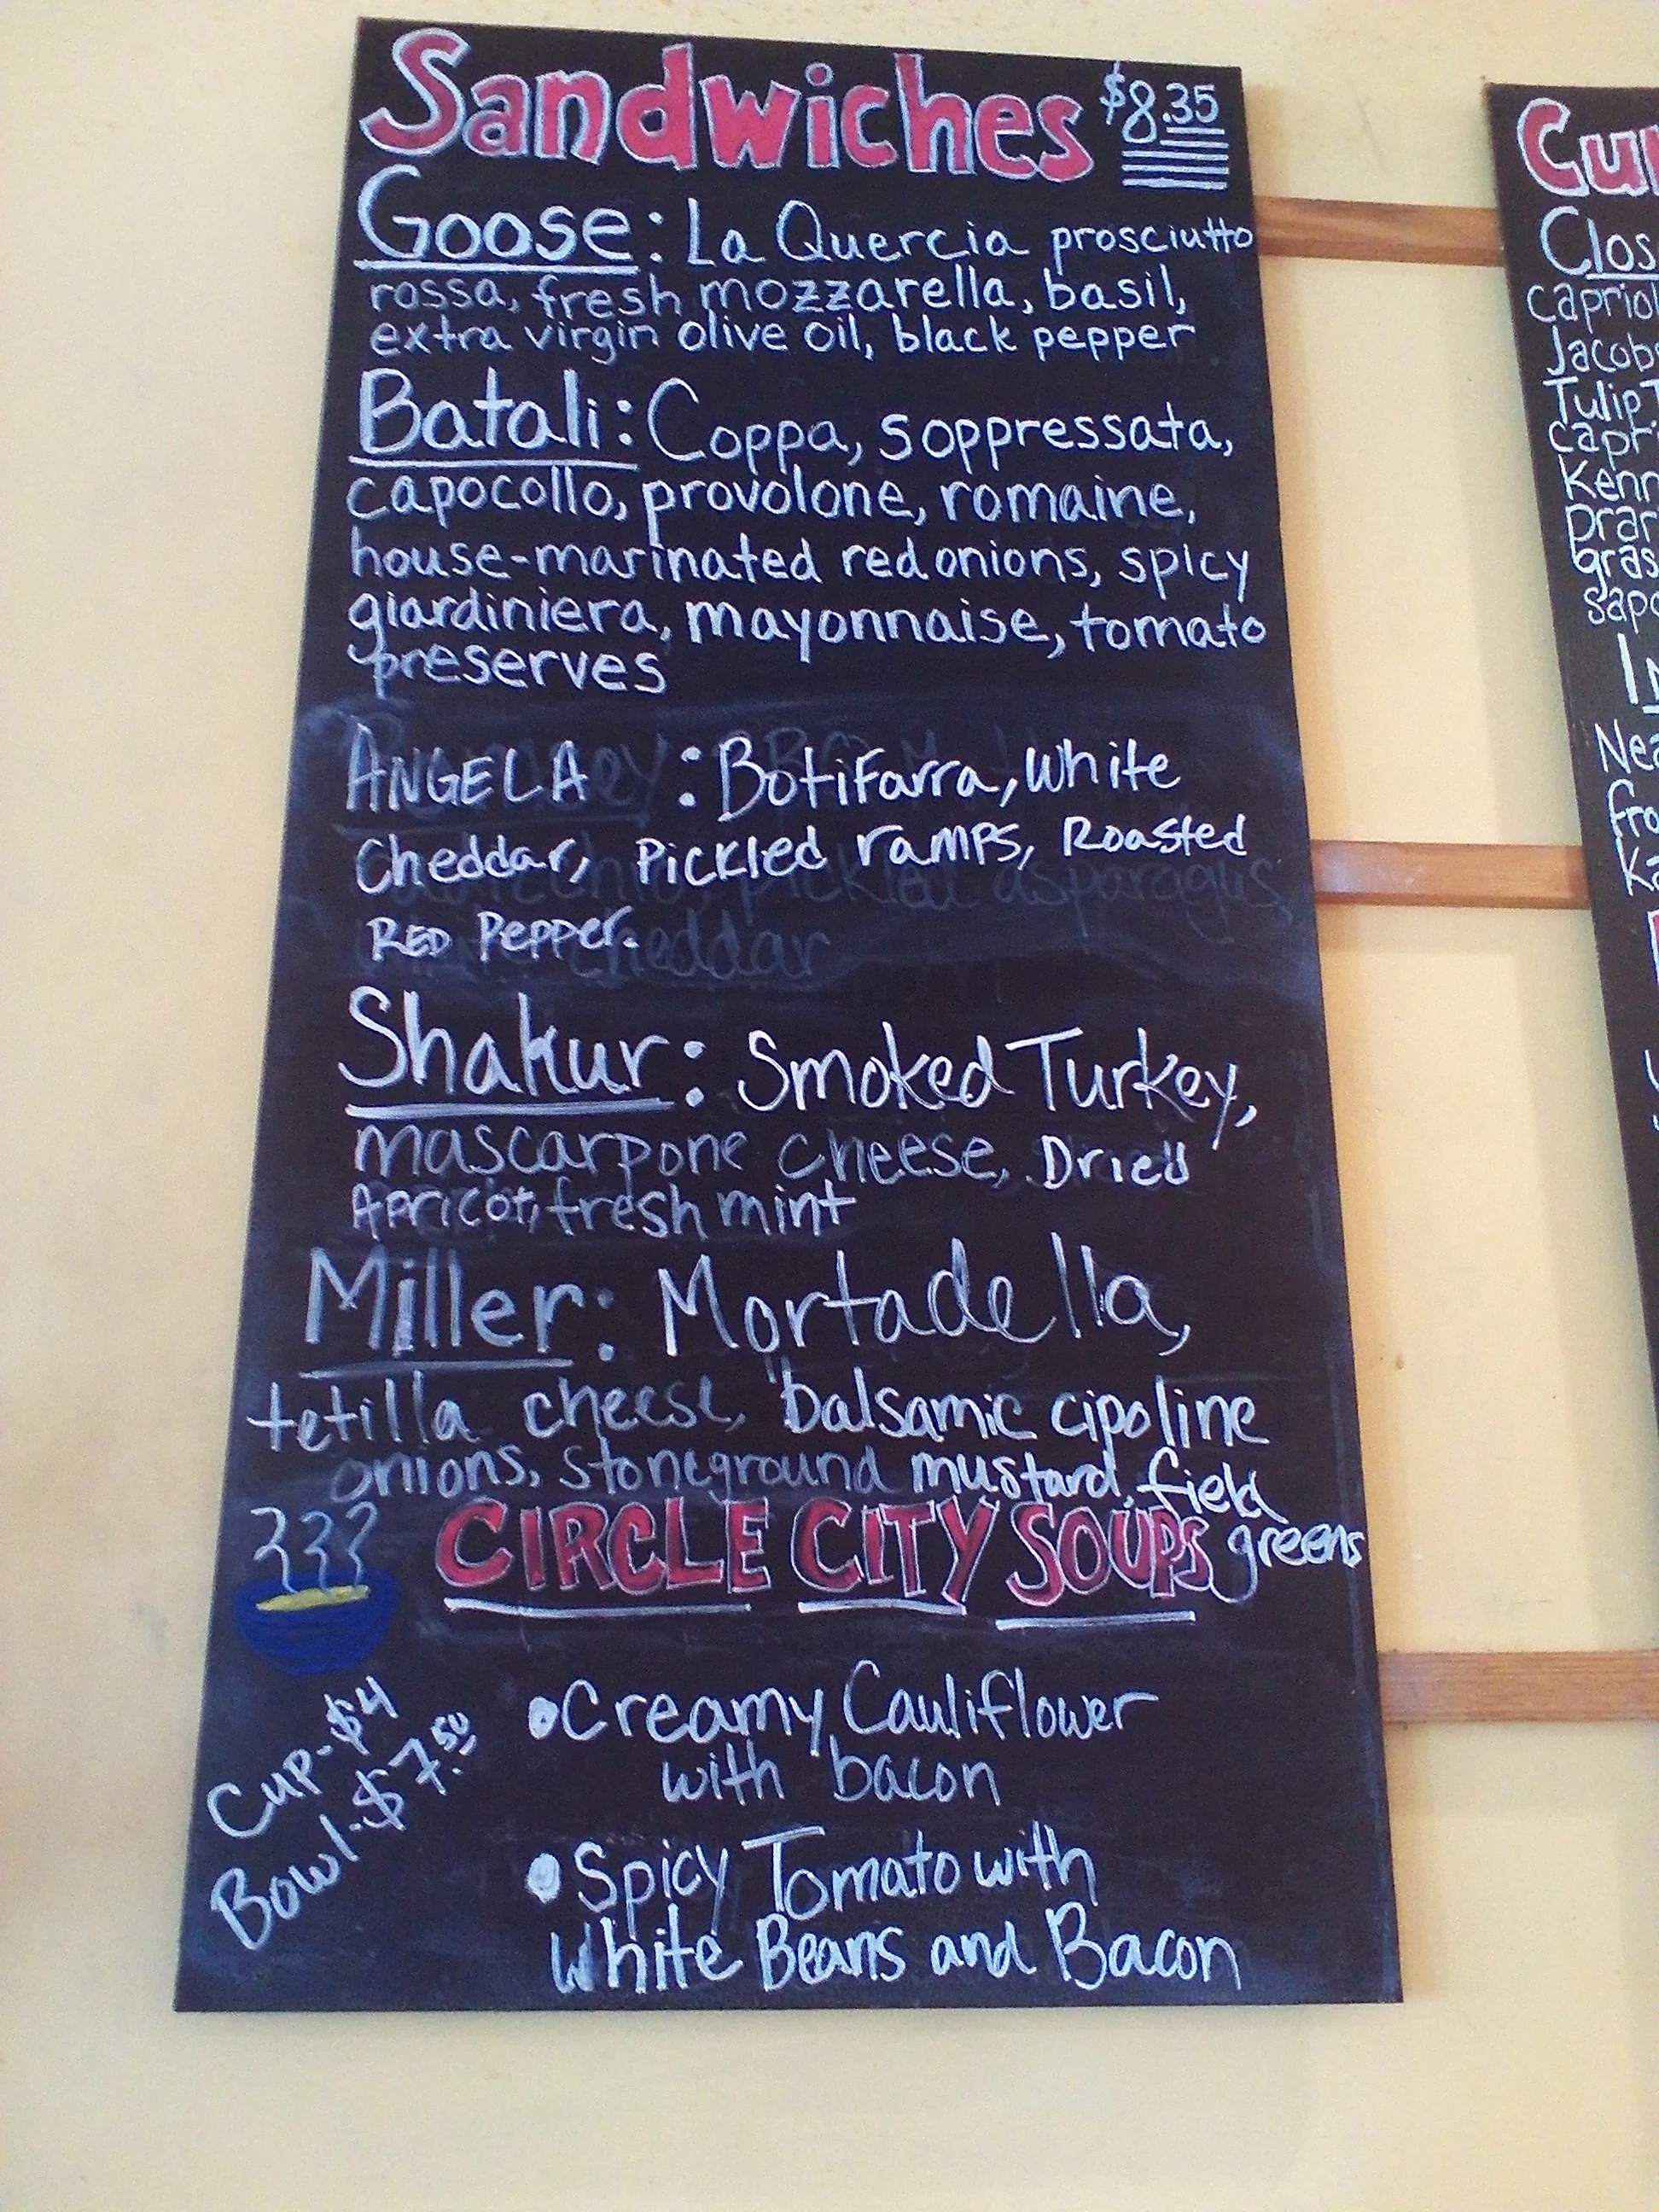 Sandwiches $8.35
Goose: La Quercia prosciutto
rossa, fresh mozzarella, basil,
extra virgin olive oil, black pepper
Batali: Coppa, soppressata,
capocollo, provolone, romaine,
house-marinated red onions, spicy
giardiniera, mayonnaise, tomato
preserves
ANGELA : Botifarra, white
Cheddar, Pickled ramps, Roasted
RED Pepper.
Shakur: Smoked Turkey,
mascarpone cheese, Dried
Apricot, fresh mint
Miller: Mortadella,
tetilla cheese, balsamic cipoline
onions, stoneground mustard, field
greens
CIRCLE CITY SOUPS
Cup-$4
Bowl-$7.50
• Creamy Cauliflower
with bacon
• Spicy Tomato with
White Beans and Bacon
Cu
Clos
Capriol
Jacobs
Tulip T
capri
Kenn
Nea
fro
Ka